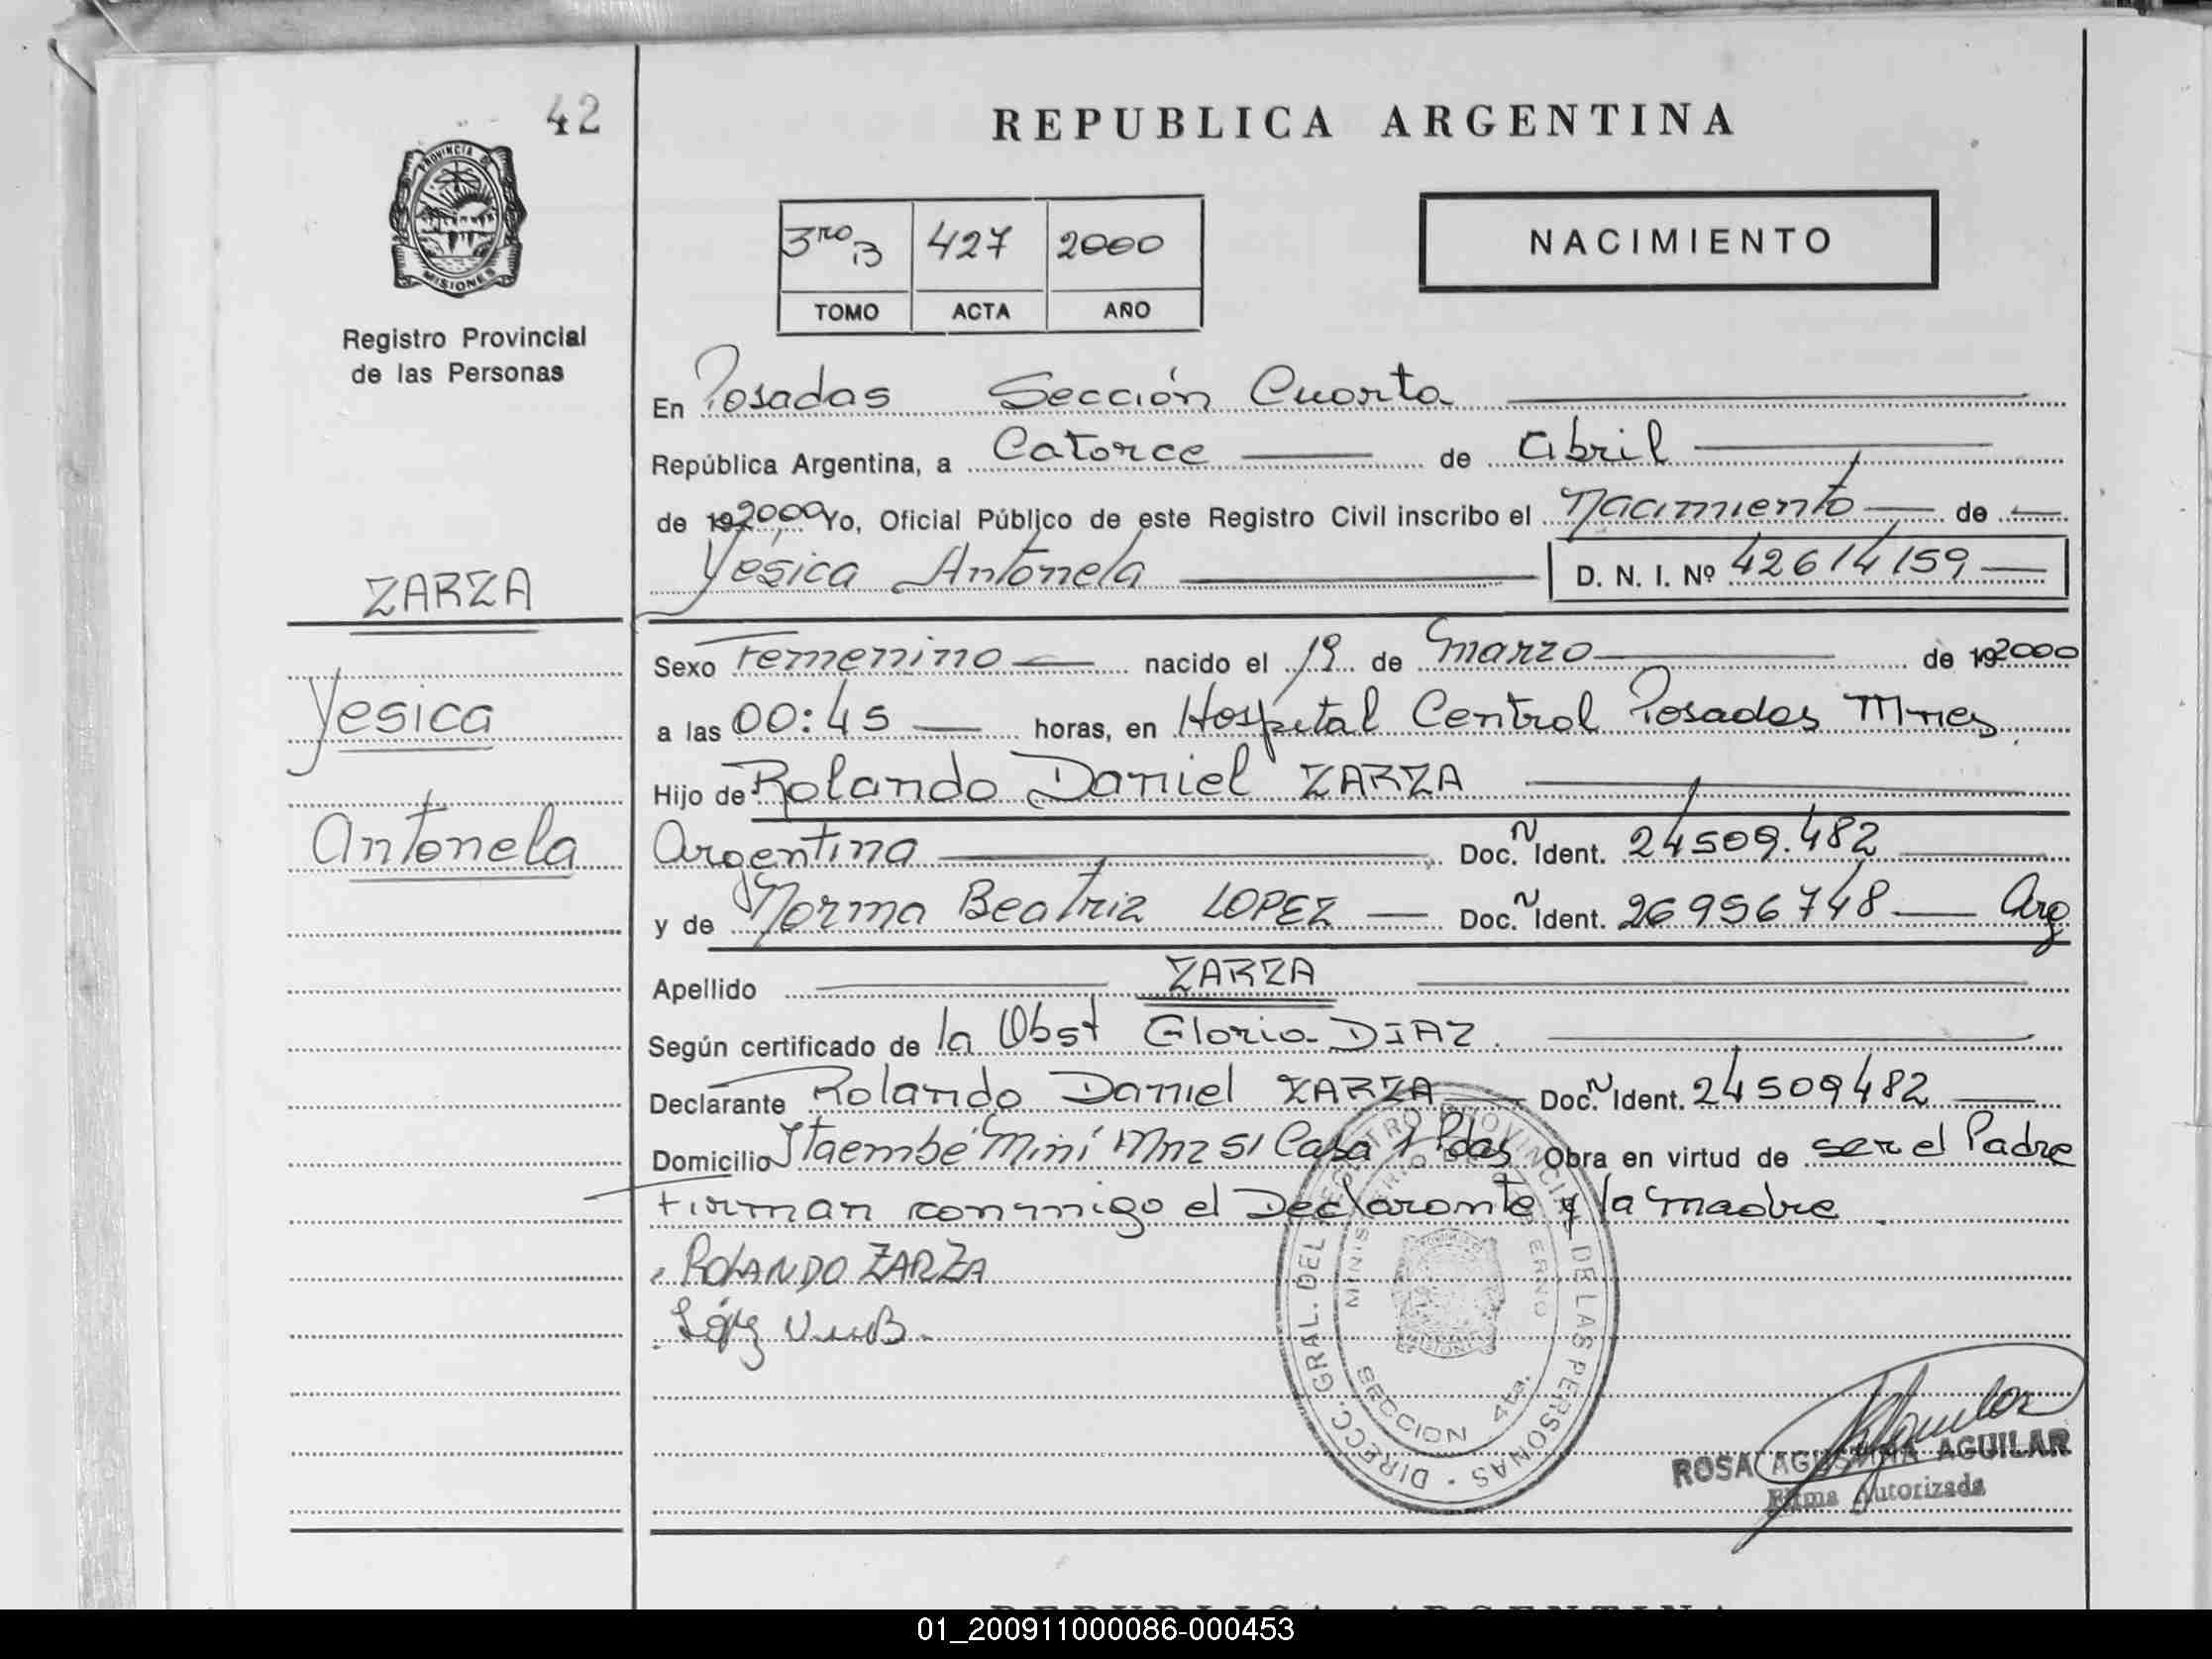 42
REPUBLICA ARGENTINA
PROVINCIA DE
MISIONES
Registro Provincial
de las Personas
3ro B 427 2000
TOMO ACTA AÑO
NACIMIENTO
En Posadas Sección Cuarta
República Argentina, a Catorce de Abril
de 192000 Yo, Oficial Público de este Registro Civil inscribo el Nacimiento de
Yésica Antonela D. N. I. Nº 42614159
ZARZA
Yesica
Antonela
Sexo Femenino nacido el 19 de Marzo de 192000
a las 00:45 horas, en Hospital Central Posadas Mnes
Hijo de Rolando Daniel ZARZA
Argentina Doc. N Ident. 24509.482
y de Norma Beatriz LOPEZ Doc. N Ident. 26956748 Arg
Apellido ZARZA
Según certificado de la Obst Gloria DIAZ.
Declarante Rolando Daniel ZARZA Doc. N Ident. 24509482
Domicilio Itaembé Miní Mnz 51 Casa 1 Pdas Obra en virtud de ser el Padre
Firman conmigo el Declarante y la madre
ROLANDO ZARZA
DIRECC. GRAL. DEL REGISTRO PROVINCIAL DE LAS PERSONAS
SECCION 4ta.
ROSA AGUSTINA AGUILAR
Firma Autorizada
REPUBLICA ARGENTINA
01_200911000086-000453